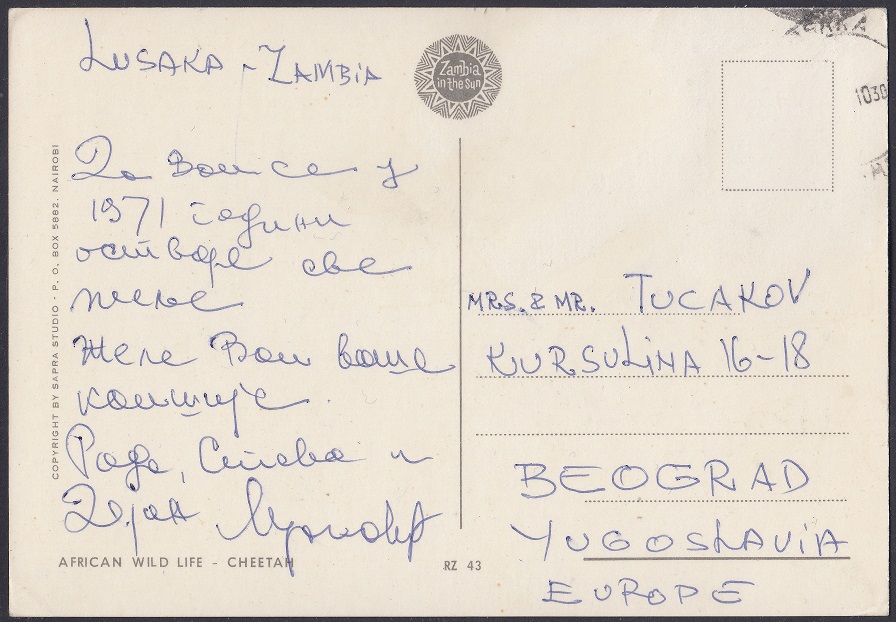 LUSAKA - ZAMBIA
Zambia
in the Sun
1030
Да Вам се у
1971 години
остваре све
желе
Желе Вам ваше
комшије
Рада, Стева и
Дејан
COPYRIGHT BY SAPRA STUDIO · P. O. BOX 5882. NAIROBI
AFRICAN WILD LIFE - CHEETAH
RZ 43
MRS. & MR. TUCAKOV
KURSULINA 16-18
BEOGRAD
YUGOSLAVIA
EUROPE